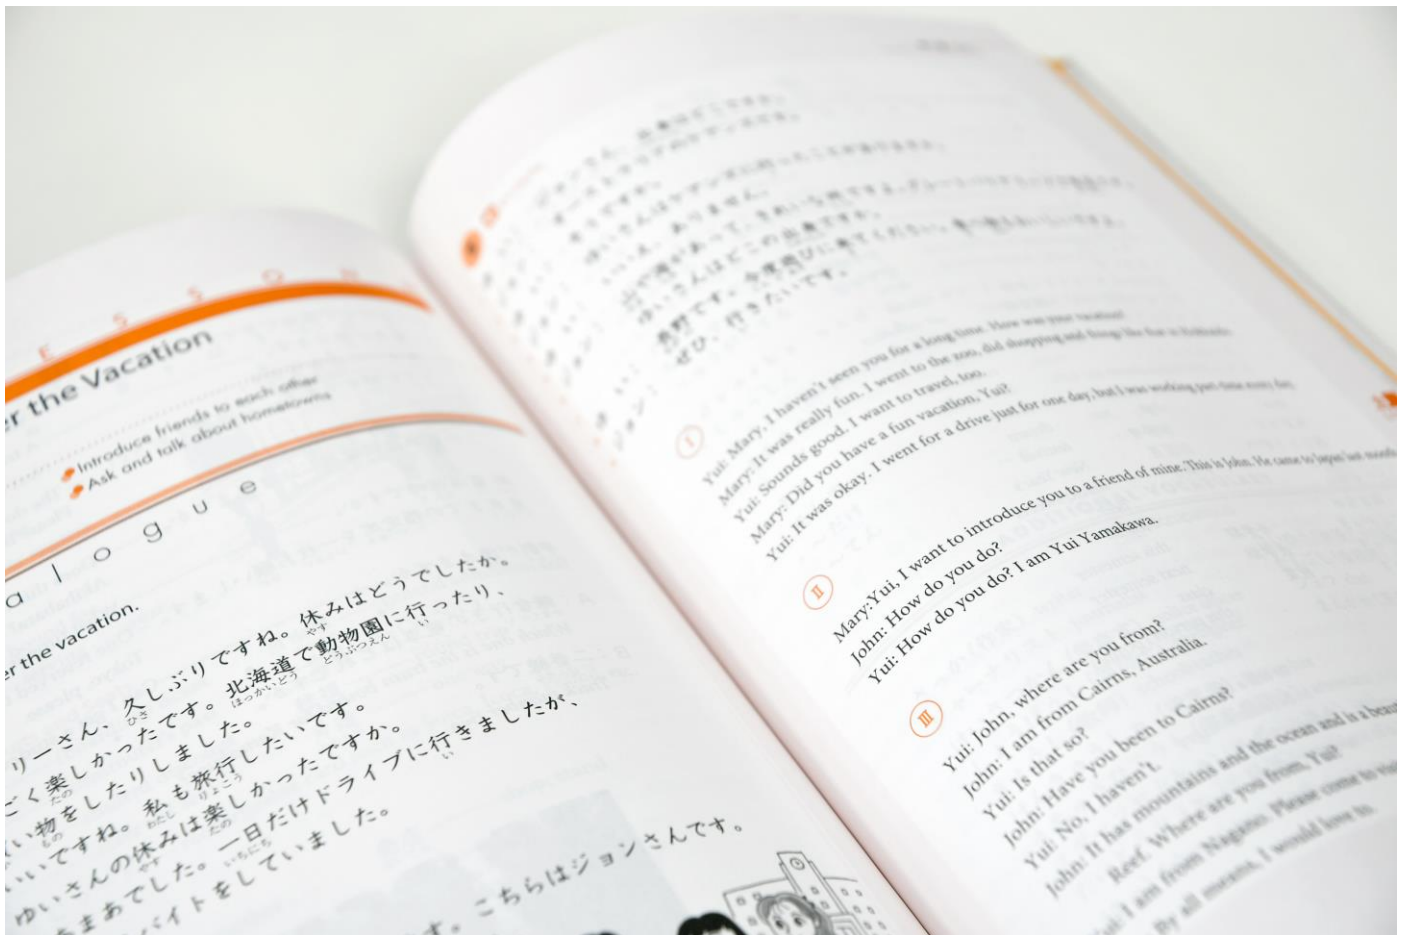 E S S O N
er the Vacation
Introduce friends to each other
Ask and talk about hometowns
a l o g u e
er the vacation.
リーさん、久しぶりですね。休みはどうでしたか。
ひさ やす
ごく楽しかったです。北海道で動物園に行ったり、
たの ほっかいどう どうぶつえん い
い物をしたりしました。
もの
いいですね。私も旅行したいです。
わたし りょこう
ゆいさんの休みは楽しかったですか。
やす たの
まあまあでした。一日だけドライブに行きましたが、
いちにち い
バイトをしていました。
す。こちらはジョンさんです。
オーストラリアのケアンズです。
そうですか。
ゆいさんはケアンズに行ったことがありますか。
いいえ、ありません。
山や海があって、きれいな所ですよ。グレートバリアリーフで
ゆいさんはどこの出身ですか。
長野です。今度遊びに来てください。食べ物もおいしいですよ。
ぜひ、行きたいです。
I
Yui: Mary, I haven't seen you for a long time. How was your vacation?
Mary: It was really fun. I went to the zoo, did shopping and things like that in Hokkaido.
Yui: Sounds good. I want to travel, too.
Mary: Did you have a fun vacation, Yui?
Yui: It was okay. I went for a drive just for one day, but I was working part-time every day.
II
Mary:Yui, I want to introduce you to a friend of mine. This is John. He came to Japan last month.
John: How do you do?
Yui: How do you do? I am Yui Yamakawa.
III
Yui: John, where are you from?
John: I am from Cairns, Australia.
Yui: Is that so?
John: Have you been to Cairns?
Yui: No, I haven't.
John: It has mountains and the ocean and is a beau
Reef. Where are you from, Yui?
Yui: I am from Nagano. Please come to visi
By all means, I would love to.